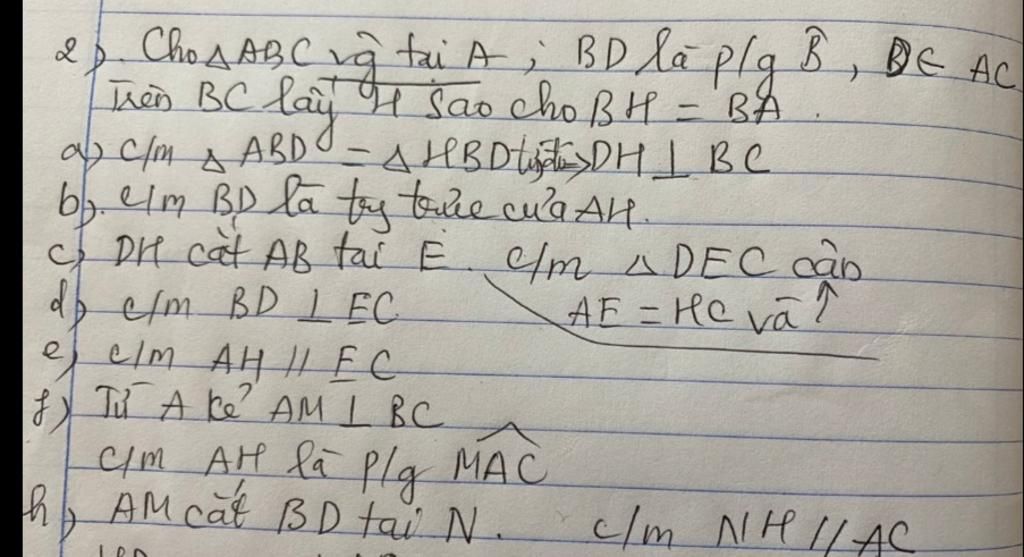 2). Cho △ABC vg tại A ; BD là p/g B̂, D∈ AC
Trên BC lấy H sao cho BH = BA.
a) c/m △ ABD = △ HBD từ đó => DH ⊥ BC
b). c/m BD là trg trực của AH.
c) DH cắt AB tại E. c/m △ DEC cân
AE = HC và ↑
d) c/m BD ⊥ EC
e) c/m AH // EC
f) Từ A kẻ AM ⊥ BC
c/m AH là p/g MAC
h) AM cắt BD tại N. c/m NH // AC